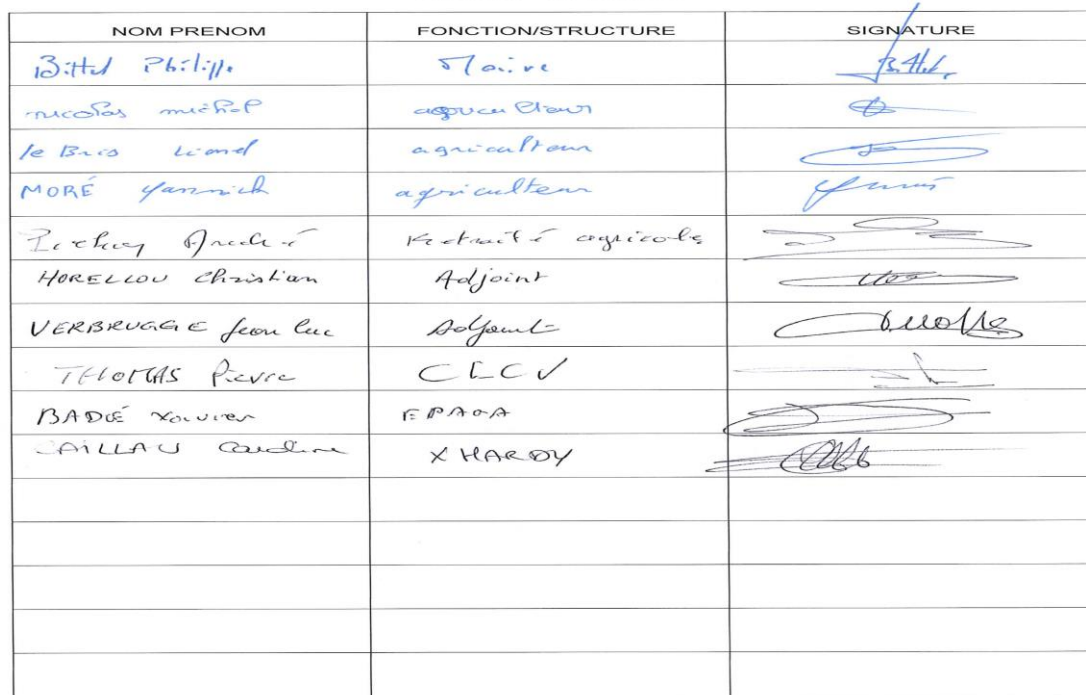 NOM PRENOM FONCTION/STRUCTURE SIGNATURE
Bittel Philippe Maire Bittel
nicolas michel agriculteur
le Bris Lionel agriculteur
MORÉ Yannick agriculteur
André Retraité agricole
HORELLOU Christian Adjoint
VERBRUGGE Jean Luc Adjoint
THOMAS Pierre CLCV
BADIÉ Xavier EPAGA
CAILLAU Caroline X HARDY